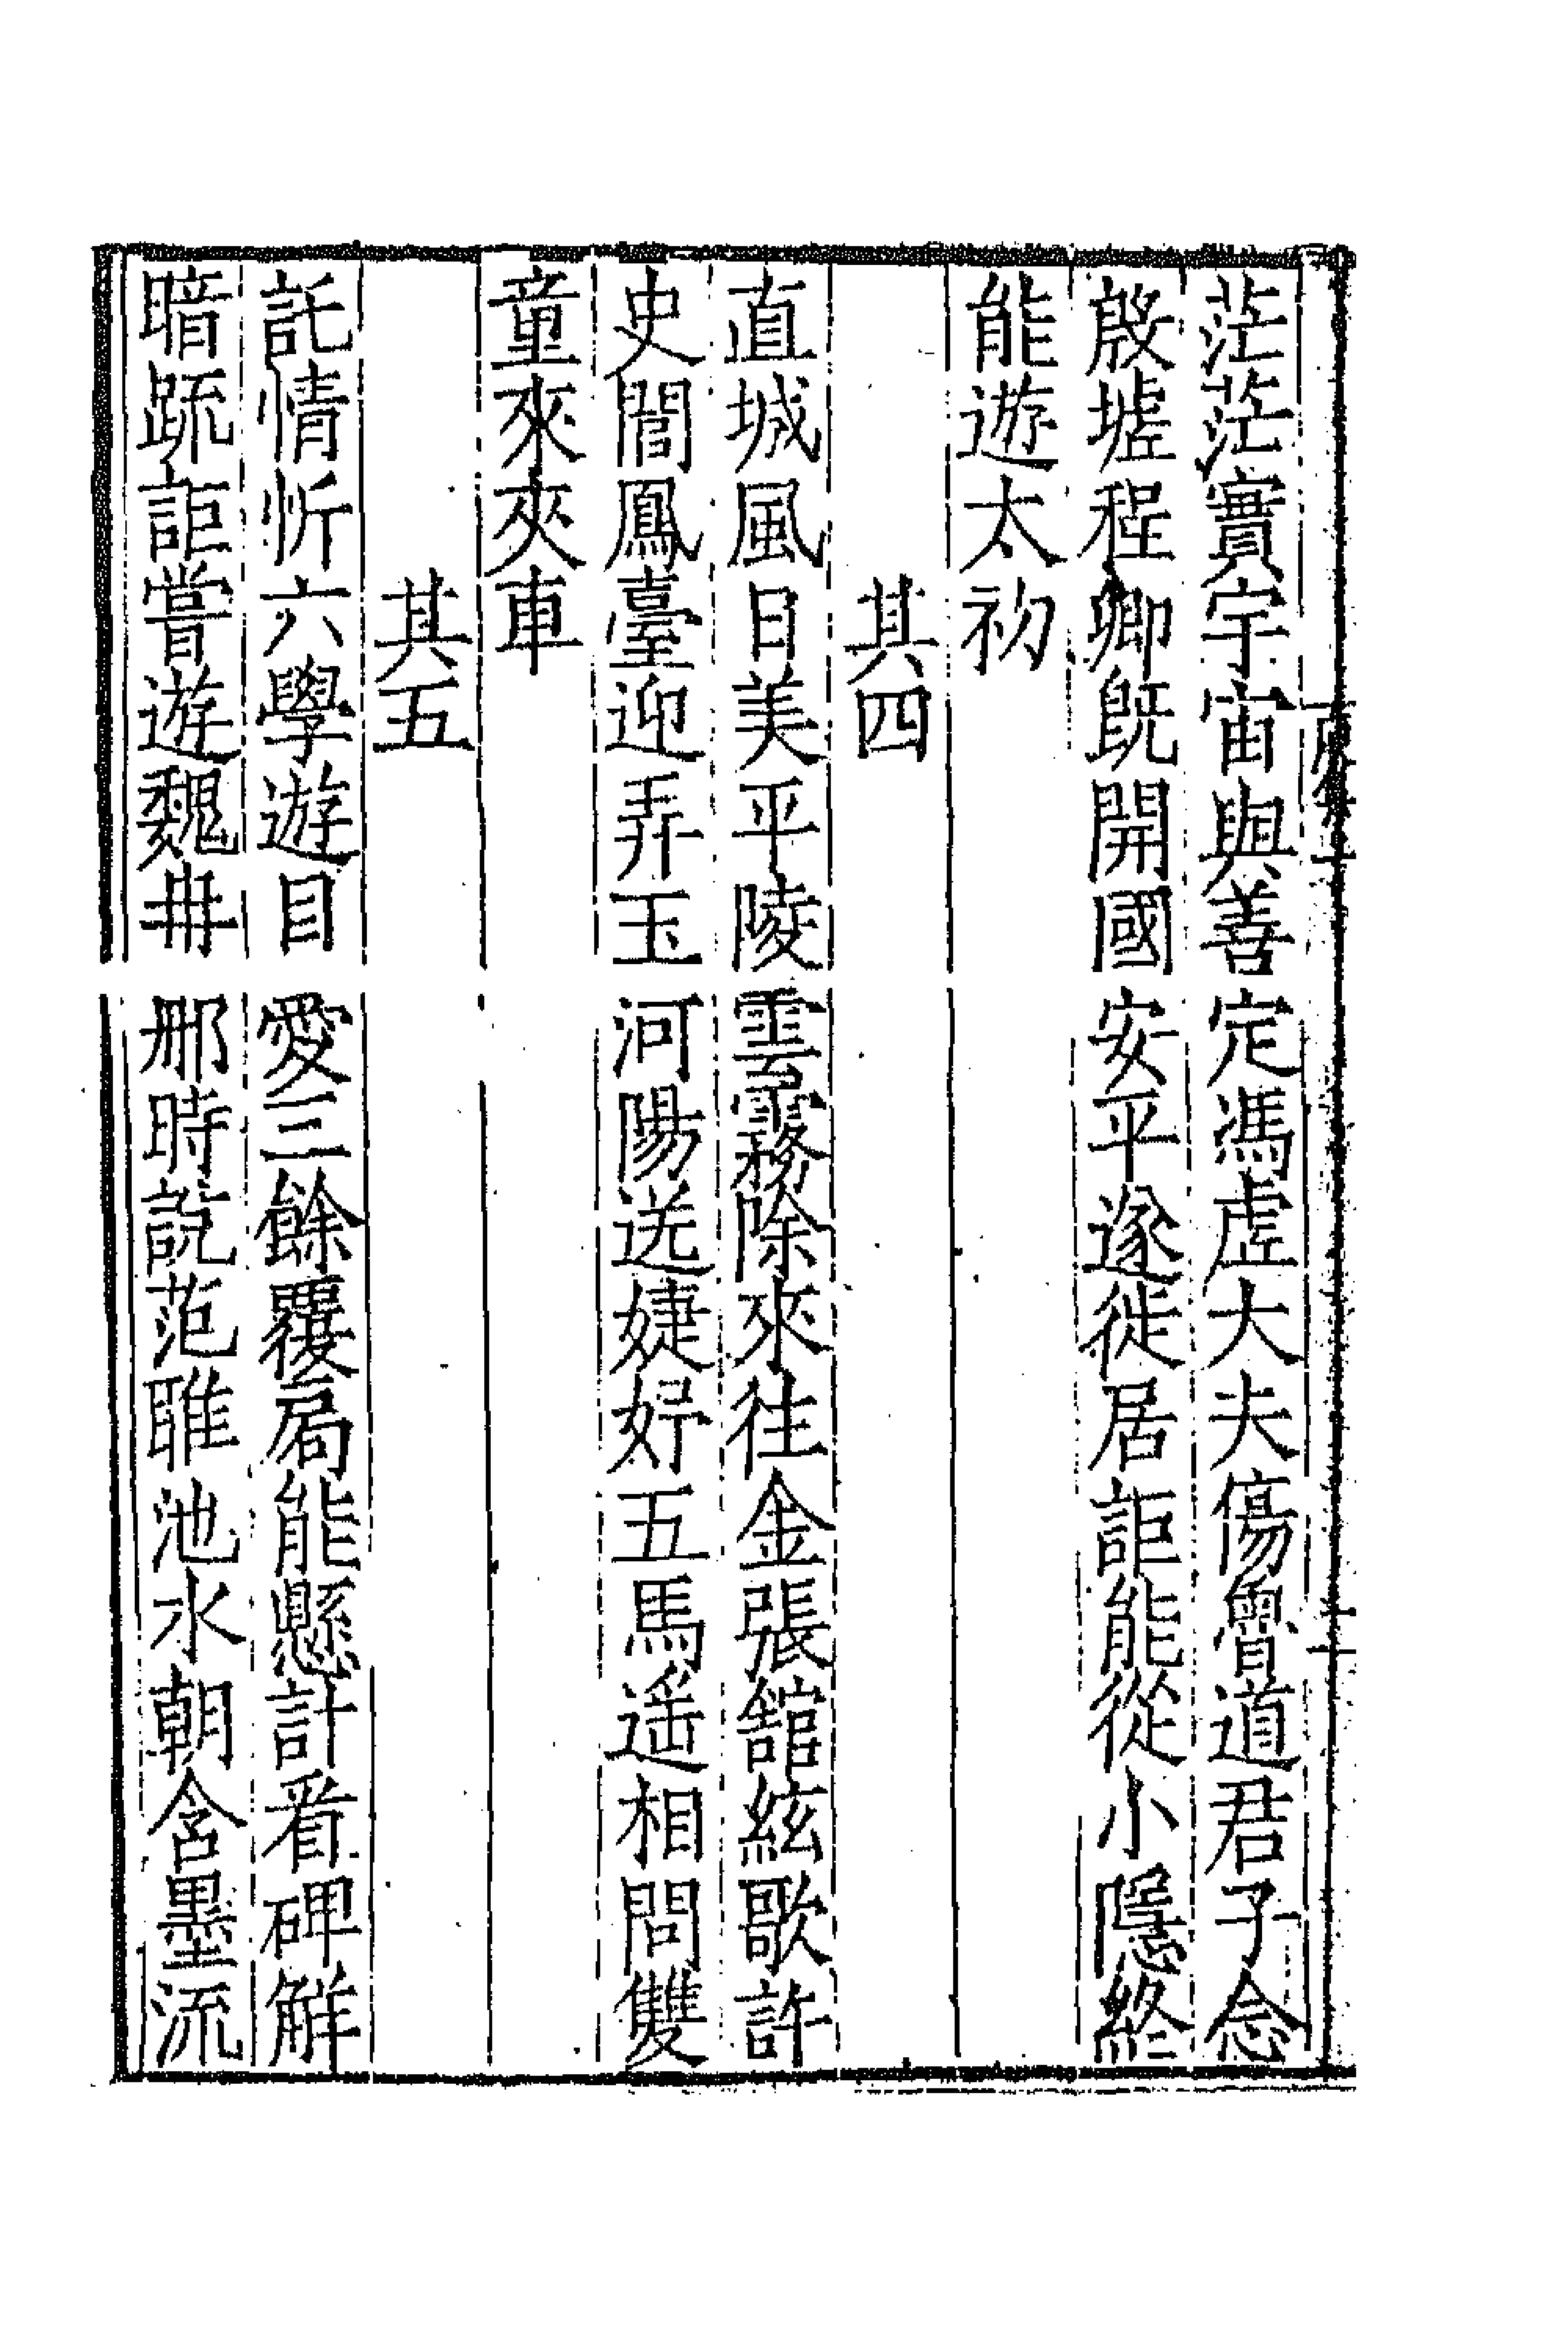 茫茫實宇宙與善定馮虛大夫傷魯道君子念
殷墟程卿旣開國安平遂徙居詎能從小隱終
能遊太初
其四
直城風日美平陵雲霧除來往金張舘絃歌許
史閭鳳臺迎弄玉河陽送婕妤五馬遥相問雙
童來夾車
其五
託情忻六學遊目愛三餘覆局能懸計看碑解
暗䟽詎嘗遊魏冉那時說范雎池水朝含墨流